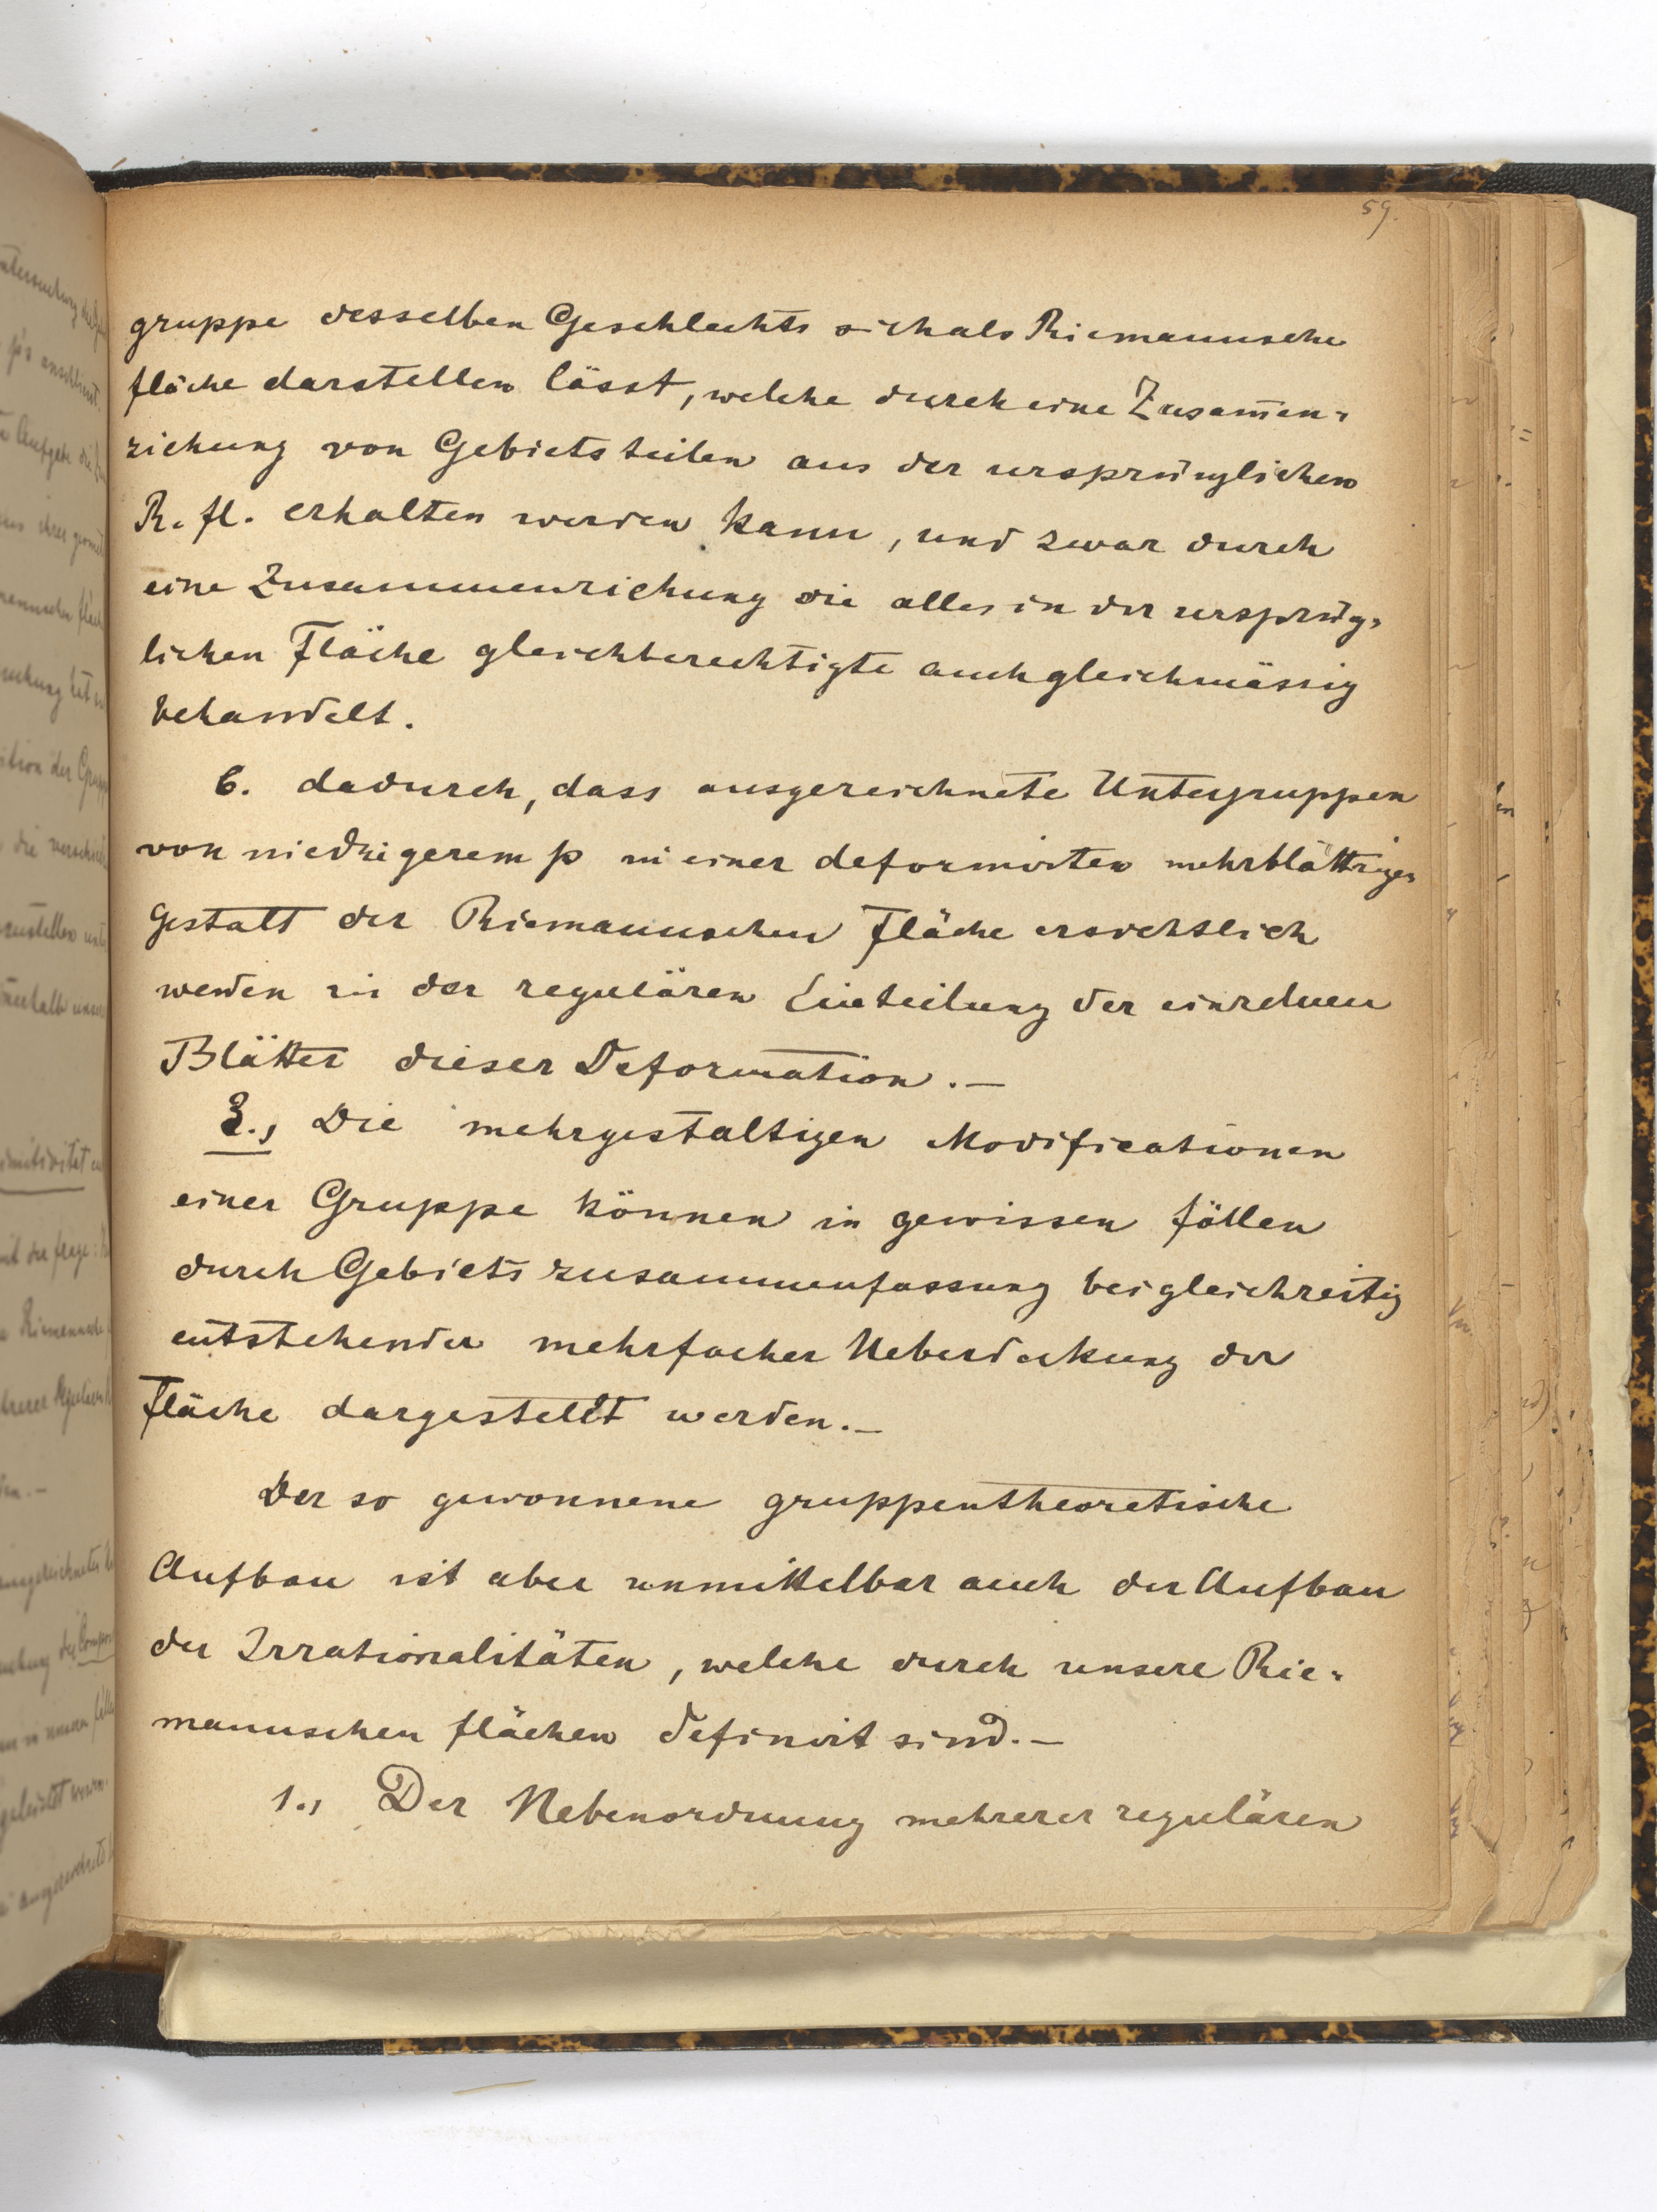 59.
gruppe desselben Geschlechts sich als Riemannsche
fläche darstellen lässt, welche durch eine Zusam̄en=
ziehung von Gebietsteilen aus der ursprünglichen
R. fl. erhalten werden kann, und zwar durch
eine Zusammenziehung die alles in der ursprüng=
lichen Fläche gleichberechtigte auch gleichmässig
behandelt.
6. dadurch, dass ausgezeichnete Untergruppen
von niedrigerem p in einer deformirten mehrblättrigen
Gestalt der Riemannschen Fläche ersichtlich
werden in der regulären Einteilung der einzelnen
Blätter dieser Deformation.—
3., Die mehrgestaltigen Modificationen
einer Gruppe können in gewissen fällen
durch Gebietszusammenfassung bei gleichzeitig
entstehender mehrfacher Ueberdeckung der
Fläche dargestellt werden.—
Der so gewonnene gruppentheoretische
Aufbau ist aber unmittelbar auch der Aufbau
der Irrationalitäten, welche durch unsere Rie=
mannschen flächen definirt sind.—
1., Der Nebenordnung mehrerer regulären